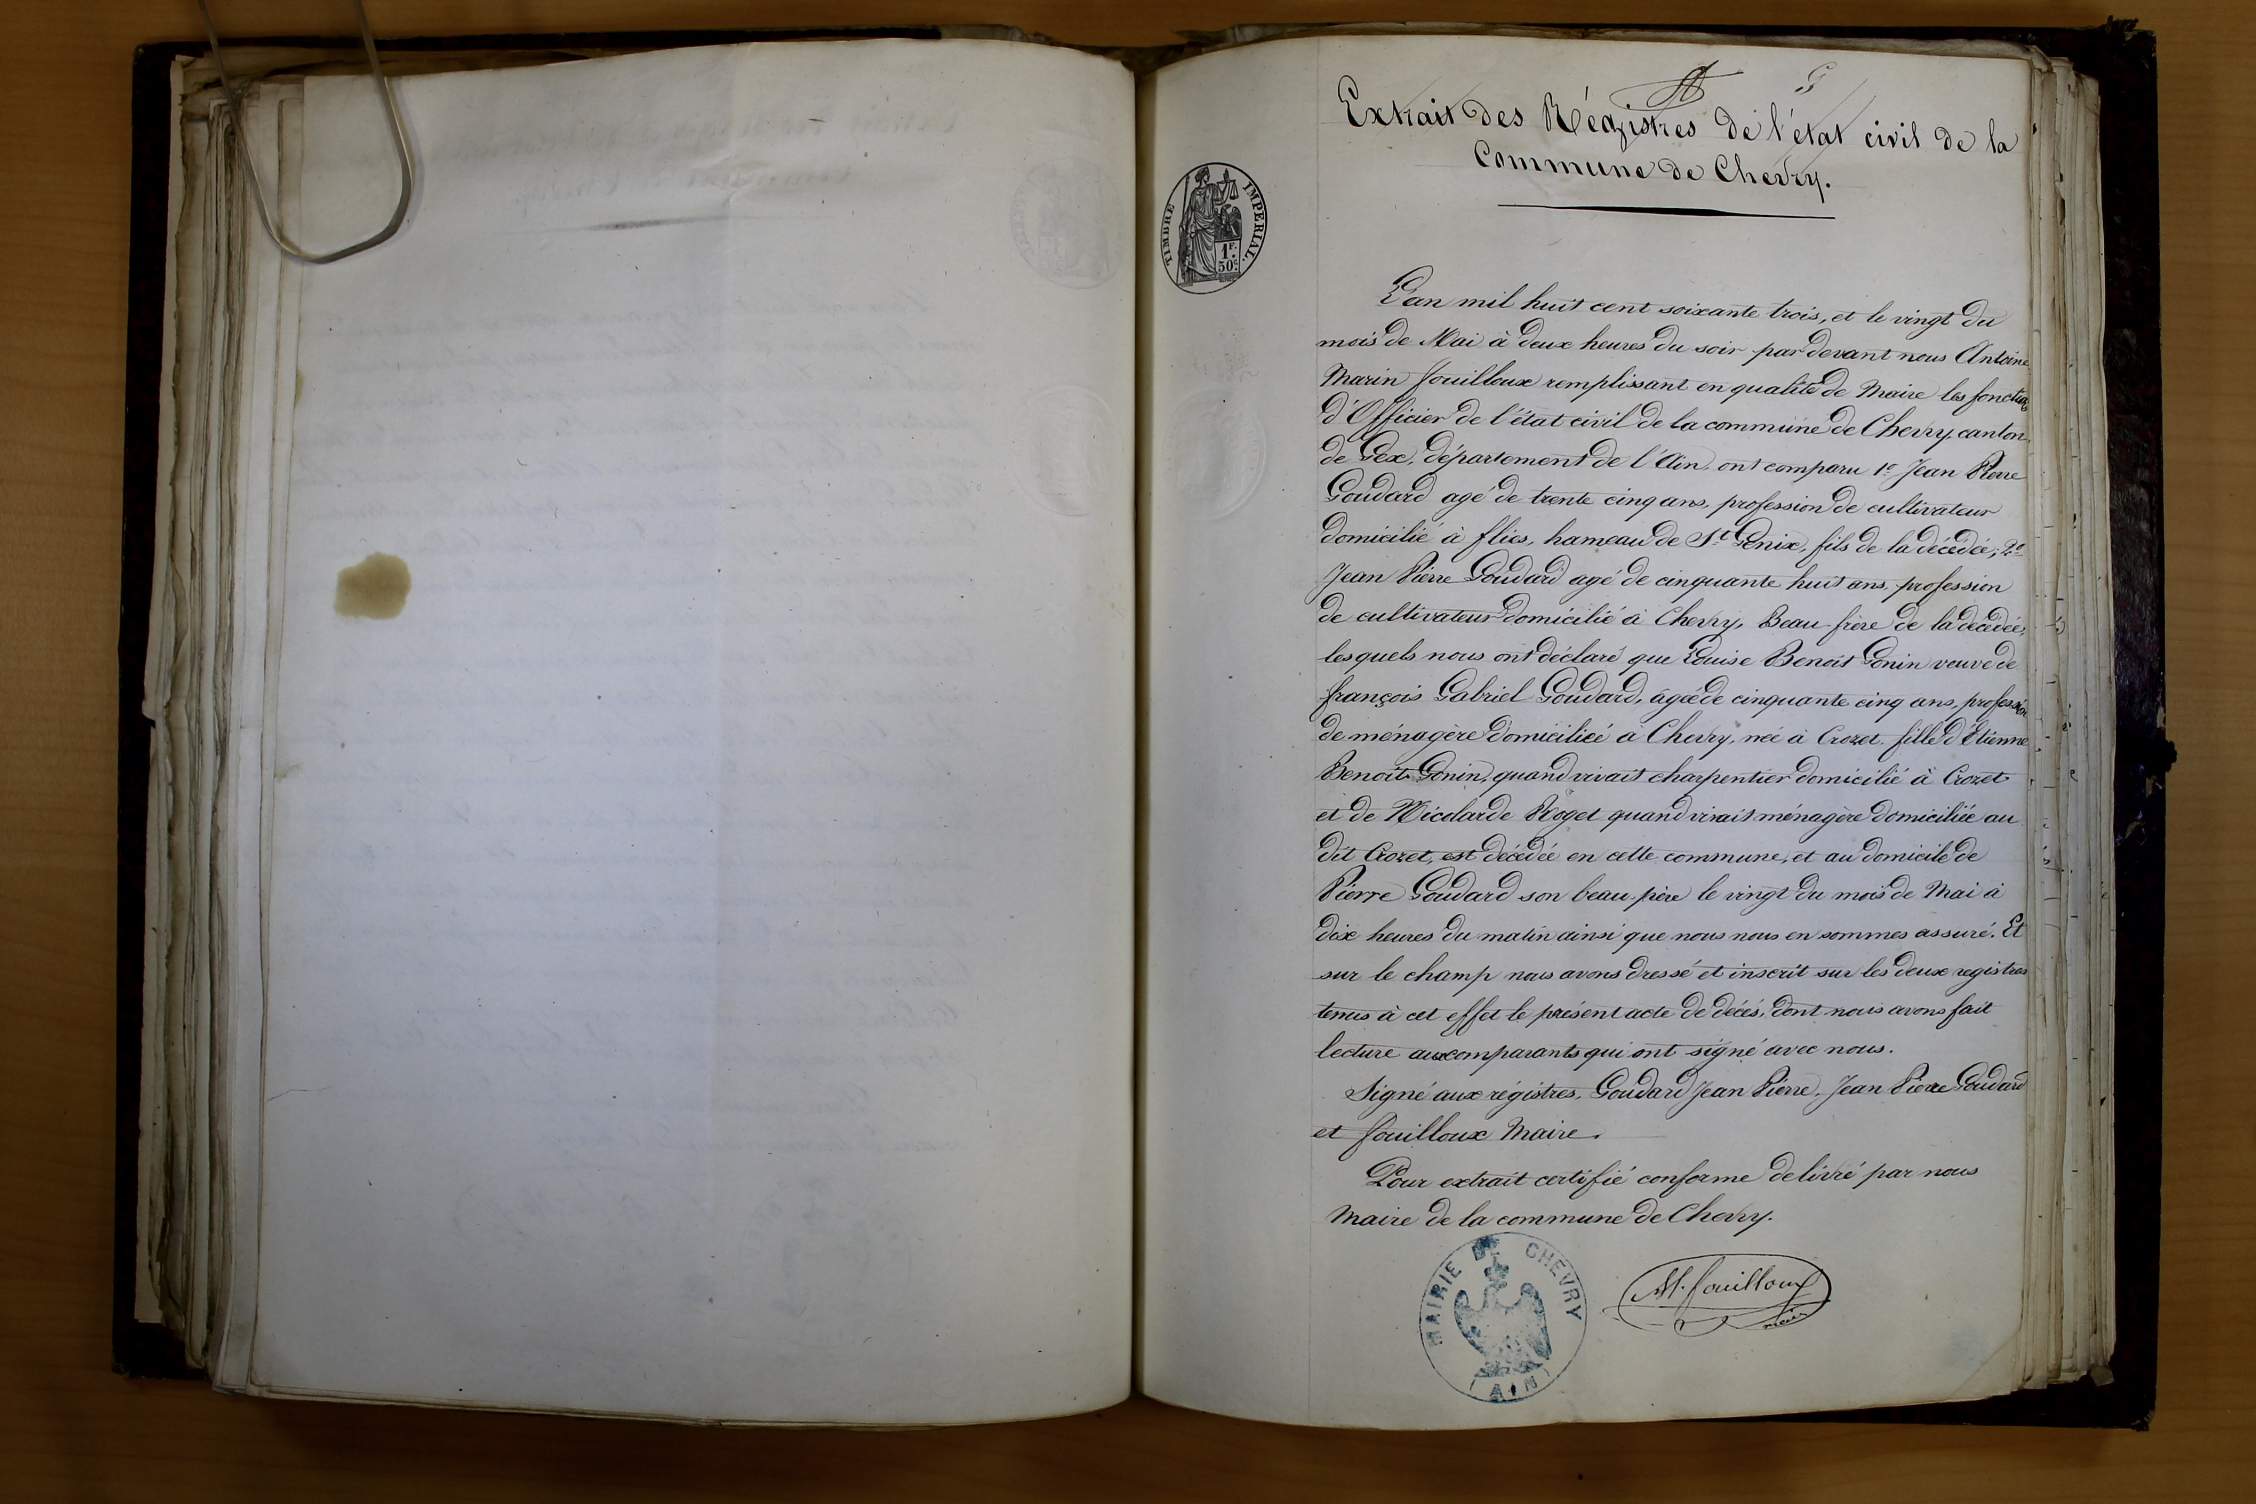 Extrait des Régistres de l'état civil de la
Commune de Chevry.
TIMBRE IMPERIAL.
1F.
50c.
L'an mil huit cent soixante trois, et le vingt du
mois de Mai à deux heures du soir par devant nous Antoine
Marin fouilloux remplissant en qualité de Maire les fonctions
d'Officier de l'état civil de la commune de Chevry, canton
de Gex, département de l'Ain, ont comparu 1º Jean Pierre
Goudard agé de trente cinq ans, profession de cultivateur
domicilié à flies, hameau de St Genix, fils de la décédée; 2º
Jean Pierre Goudard agé de cinquante huit ans, profession
de cultivateur domicilié à Chevry, Beau-frère de la décédée,
lesquels nous ont déclaré que Louise Benoit Gonin veuve de
françois Gabriel Goudard, agée de cinquante cinq ans, profession
de ménagère domiciliée à Chevry, née à Crozet, fille d'Étienne
Benoit Gonin, quand vivait charpentier domicilié à Crozet
et de Nicolarde Roget quand vivait ménagère domiciliée au
dit Crozet, est décédée en cette commune, et au domicile de
Pierre Goudard son beau-père le vingt du mois de Mai à
dix heures du matin ainsi que nous nous en sommes assuré. Et
sur le champ nous avons dressé et inscrit sur les deux registres
tenus à cet effet le présent acte de décès, dont nous avons fait
lecture aux comparants qui ont signé avec nous.
Signé aux régistres, Goudard Jean Pierre, Jean Pierre Goudard
et fouilloux Maire.
Pour extrait certifié conforme delivré par nous
Maire de la commune de Chevry.
MAIRIE DE CHEVRY
(AIN)
M. fouilloux
maire